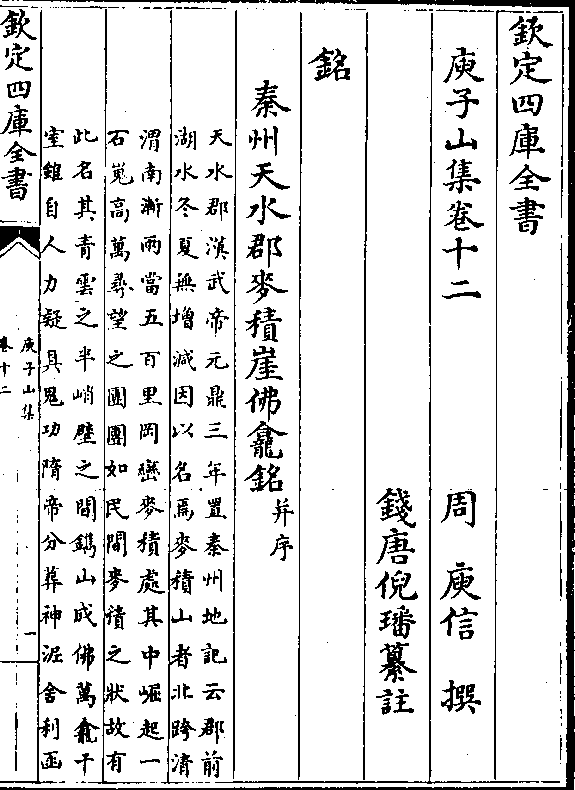 欽定四庫全書
庾子山集卷十二
周 庾信 撰
錢唐倪璠纂註
銘
秦州天水郡麥積崖佛龕銘并序
天水郡漢武帝元鼎三年置秦州地記云郡前
湖水冬夏無增減因以名焉麥積山者北跨清
渭南漸兩當五百里岡巒麥積處其中崛起一
石嵬高萬尋望之團團如民間麥積之狀故有
此名其青雲之半峭壁之間鐫山成佛萬龕千
室雖自人力疑具鬼功隋帝分葬神泥舍利函
欽定四庫全書
庾子山集
卷十二
一